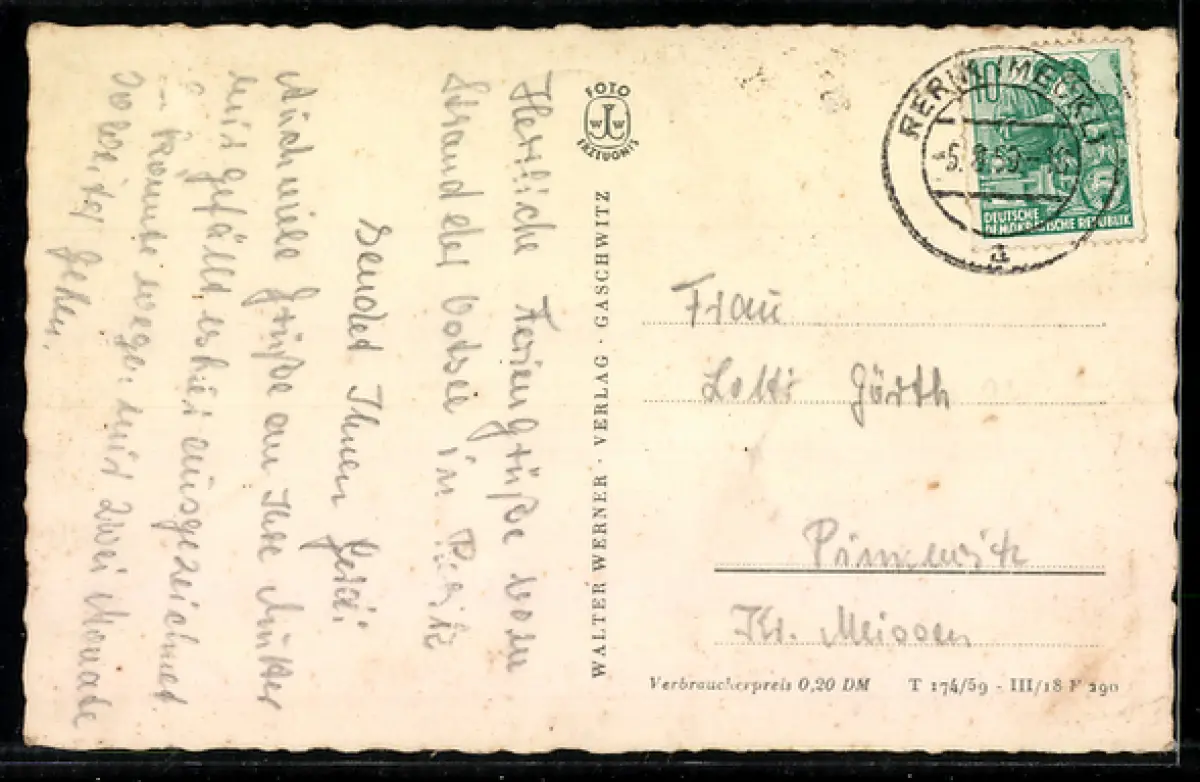 Herrliche Feriengrüße vom
Strand der Ostsee in Rerik
Sendet Ihnen Gerdi.
Auch viele Grüße an Ihre Mutter
mir gefällt es hier ausgezeichnet
konnte wegen mir zwei Monate
so weiter gehen.
FOTO
W W
ERZEUGNIS
WALTER WERNER · VERLAG · GASCHWITZ
RERIK (MECKL)
10
DEUTSCHE
DEMOKRATISCHE REPUBLIK
a
Frau
Lotti Görth
Kr. Meissen
Verbraucherpreis 0,20 DM T 174/59 - III/18 F 290